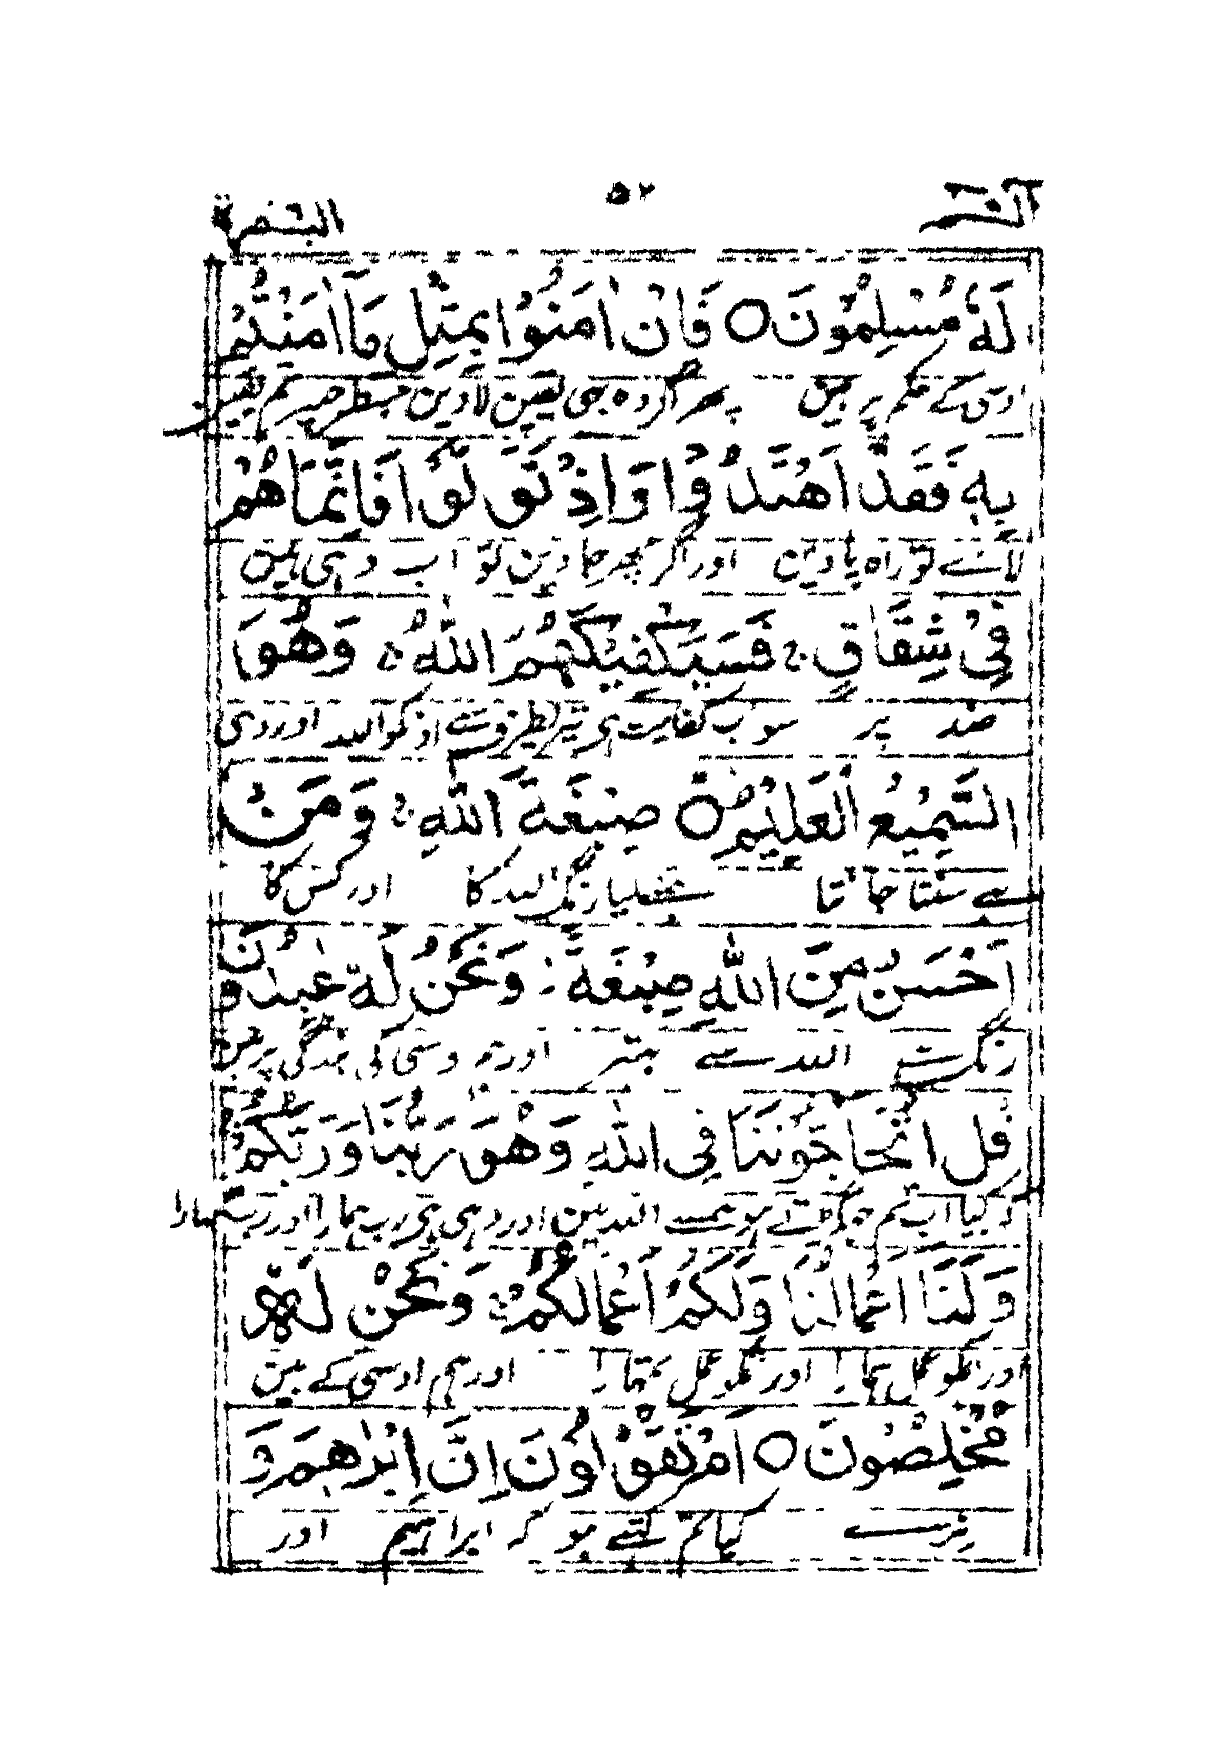 الٓمّٓ ۵۲ البقرة
لَهٗ مُسْلِمُوْنَ ○ فَاِنْ اٰمَنُوْا بِمِثْلِ مَآ اٰمَنْتُمْ
اوسی کے حکم پر ہیں پھر اگر وہ بھی یقین لاویں جسطرح پر تم یقین
بِهٖ فَقَدِ اهْتَدَوْا وَاِنْ تَوَلَّوْا فَاِنَّمَا هُمْ
لائے تو راہ پاویں اور اگر پھر جاویں تو اب وہی ہیں
فِيْ شِقَاقٍ ج فَسَيَكْفِيْكَهُمُ اللّٰهُ ج وَهُوَ
ضد پر سو اب کفایت ہی تیری طرف سے اونکو اللہ اور وہی
السَّمِيْعُ الْعَلِيْمُ ○ صِبْغَةَ اللّٰهِ ج وَمَنْ
ہے سنتا جانتا رنگ اللہ کا اور کس کا
اَحْسَنُ مِنَ اللّٰهِ صِبْغَةً ز وَنَحْنُ لَهٗ عٰبِدُوْنَ
رنگت اللہ سے بہتر اور ہم اوسی کی بندگی پر ہیں
قُلْ اَتُحَآجُّوْنَنَا فِي اللّٰهِ وَهُوَ رَبُّنَا وَرَبُّكُمْ
کہ کیا اب تم جھگڑتے ہو ہمسے اللہ میں اور وہی ہی رب ہمارا اور رب تمہارا
وَلَنَآ اَعْمَالُنَا وَلَكُمْ اَعْمَالُكُمْ ج وَنَحْنُ لَهٗ
اور ہمکو عمل ہمارا اور تمکو عمل تمہارا اور ہم اوسی کے ہیں
مُخْلِصُوْنَ ○ اَمْ تَقُوْلُوْنَ اِنَّ اِبْرٰهٖمَ وَ
نرے کیا تم کہتے ہو کہ ابراہیم اور